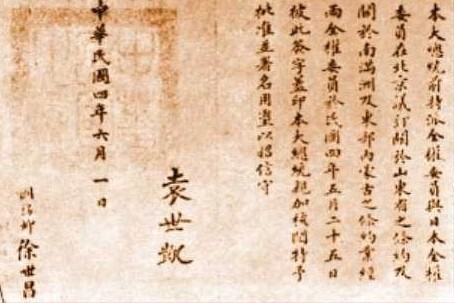 本大總統前特派全權委員與日本全權
委員在北京議訂關於山東省之條約及
關於南滿洲及東部內蒙古之條約業經
兩全權委員於民國四年五月二十五日
彼此簽字蓋印本大總統親加校閱特予
批准並署名用璽以昭信守
袁世凱
中華民國四年六月一日
徐世昌